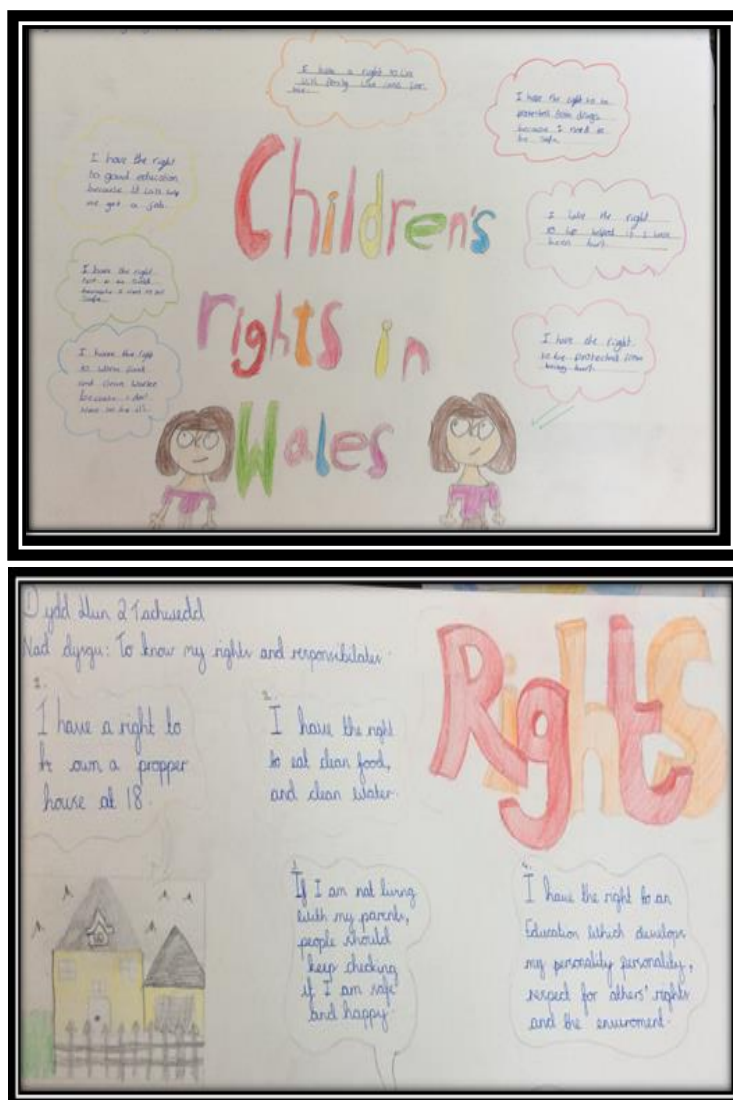 I have a right to live
with family who
I have the right to be
protected from drugs
because I need to
be safe
I have the right
to good education
because it
me get a job
Children's
I have the right
to be helped if I have
been hurt
I have the right
because I
safe
rights in
I have the right
to be protected from
being hurt
I have the right
to
and clean water
because I don't
want to be ill
Wales
Dydd Llun 2 Tachwedd
Nad dysgu: To know my rights and responsibilates
Rights
1.
I have a right to
own a propper
house at 18.
2.
I have the right
to eat clean food,
and clean water.
3.
If I am not living
with my parents,
people should
keep checking
if I am safe
and happy.
4.
I have the right to an
Education which develops
my personality personality,
respect for others' rights
and the enviroment.